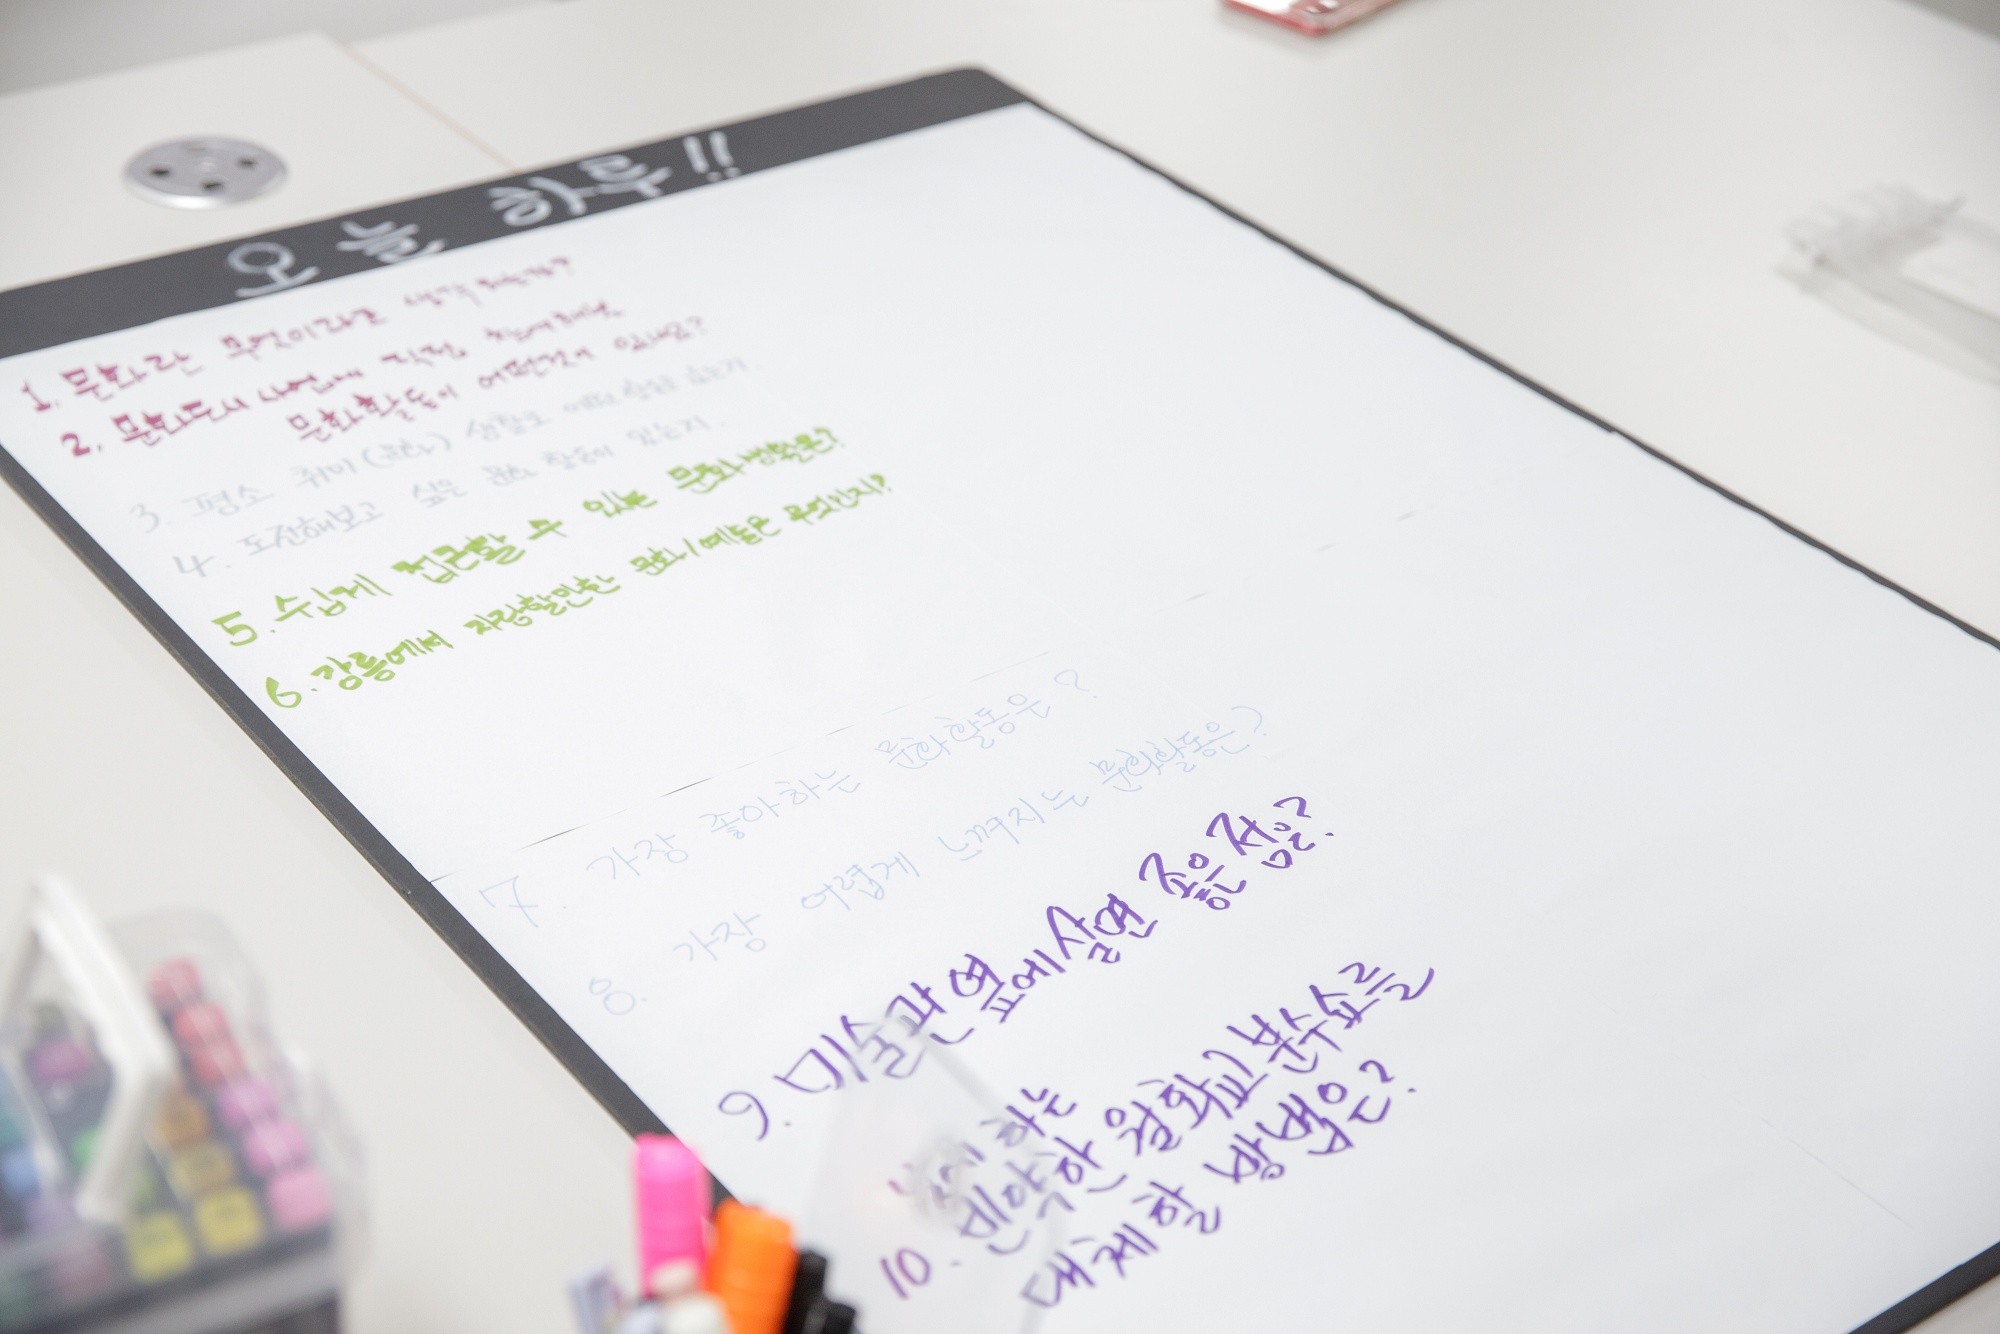 오늘 하루!!
1. 문화란 무엇이라고 생각하는가?
2. 문화도시 사업에 직접 참여해본
문화활동이 어떤것이 있나요?
3. 평소 취미(문화) 생활로 있는가.
4. 도전해보고 싶은 문화 활동이 있는지.
5. 쉽게 접근할 수 있는 문화생활은?
6. 강릉에서 자랑할만한 문화/예술은 무엇인지?
7. 가장 좋아하는 문화활동은?
8. 가장 어렵게 느껴지는 문화활동은?
9. 미술관 옆에 살면 좋은 점은?
하는
10. 빈약한 월화교 분수쇼를
대체할 방법은?